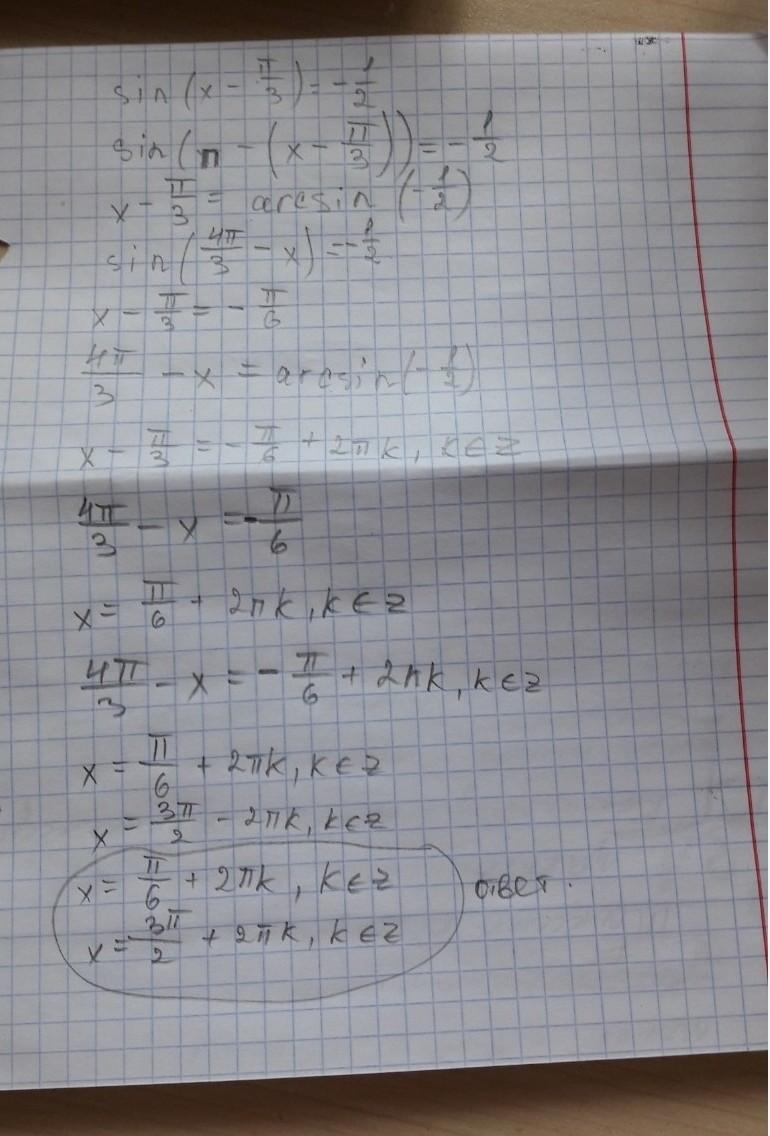 sin(x - π/3) = -1/2
sin(π - (x - π/3)) = -1/2
x - π/3 = arcsin(-1/2)
sin(4π/3 - x) = -1/2
x - π/3 = -π/6
4π/3 - x = arcsin(-1/2)
x - π/3 = -π/6 + 2πk, k∈z
4π/3 - x = -π/6
x = π/6 + 2πk, k∈z
4π/3 - x = -π/6 + 2πk, k∈z
x = π/6 + 2πk, k∈z
x = 3π/2 - 2πk, k∈z
x = π/6 + 2πk, k∈z ответ.
x = 3π/2 + 2πk, k∈z